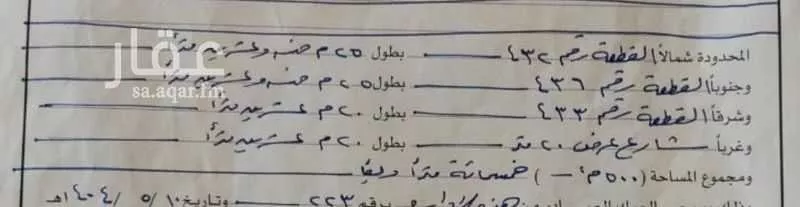 عقار
sa.aqar.fm
المحدودة شمالاً القطعة رقم ٤٣٢ بطول ٢٥ م خمسة وعشرين متراً
وجنوباً القطعة رقم ٤٣٦ بطول ٢٥ م خمسة وعشرين متراً
وشرقاً القطعة رقم ٤٣٣ بطول ٢٠ م عشرين متراً
وغرباً شارع عرض ٢٠ متر بطول ٢٠ م عشرين متراً
ومجموع المساحة (٥٠٠ م٢ —) خمسمائة متراً
برقم ٢٢٣ وتاريخ ١٠/ ٥ / ١٤٠٤هـ